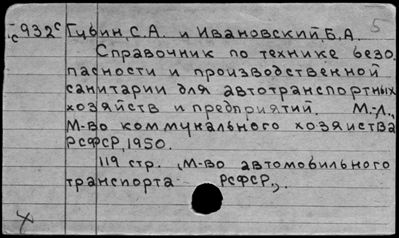 с932с Губин, С.А. и Ивановский, Б.А. 5
Справочник по технике безо
пасности и производственной
санитарии для автотранспортных
хозяйств и предприятий. М.-Л.,
М-во коммунального хозяйства
РСФСР, 1950.
119 стр. (М-во автомобильного
транспорта РСФСР).